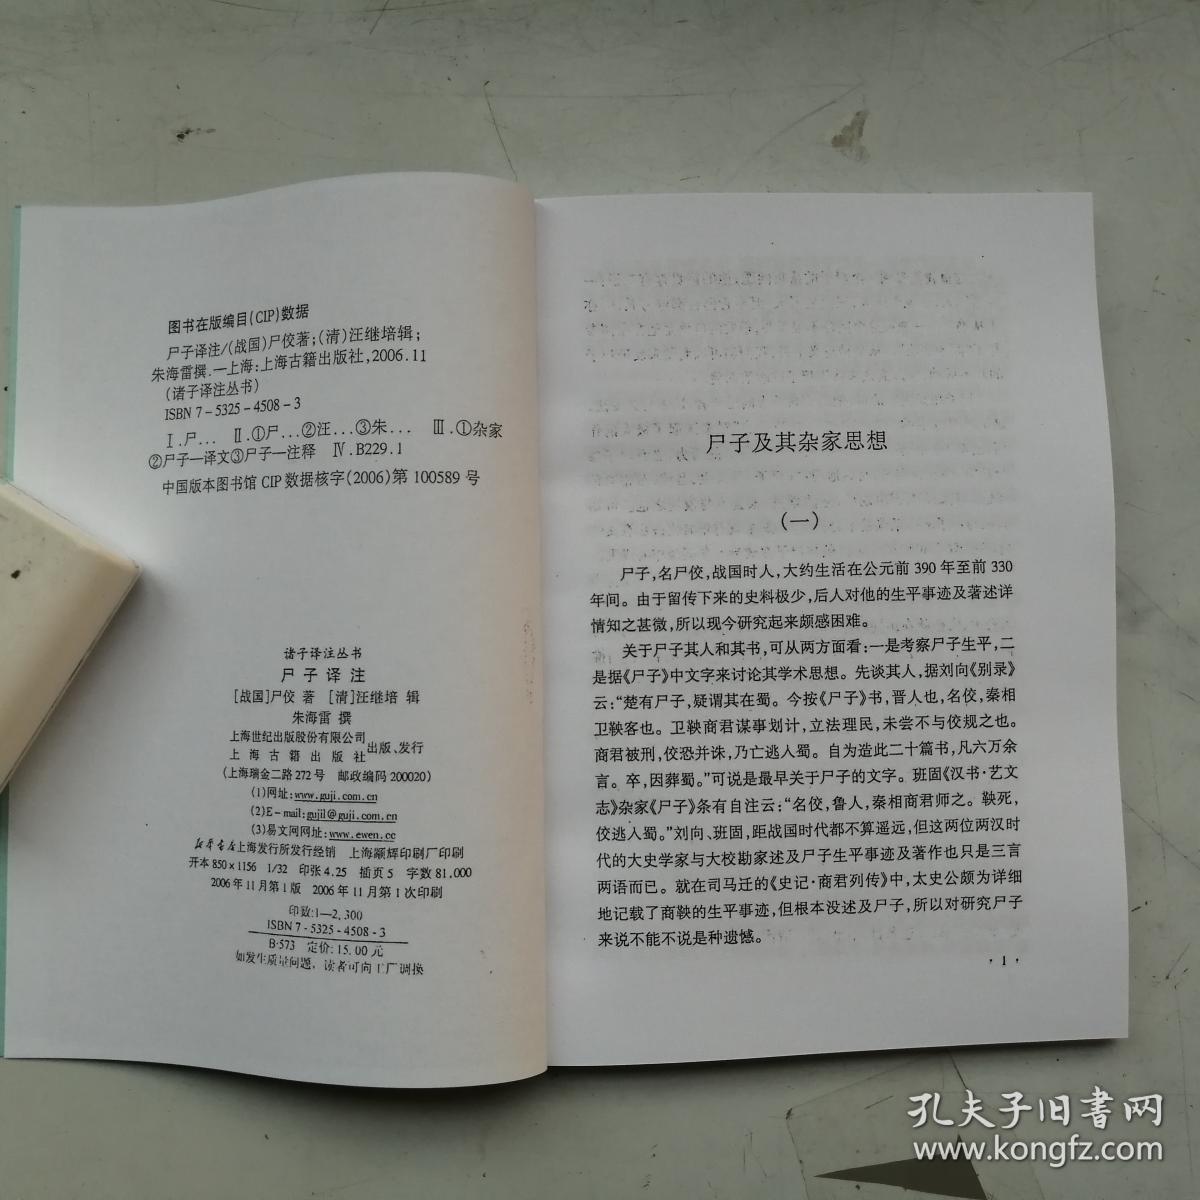 图书在版编目(CIP)数据
尸子译注/(战国)尸佼著;(清)汪继培辑;
朱海雷撰.—上海:上海古籍出版社,2006.11
(诸子译注丛书)
ISBN 7-5325-4508-3
Ⅰ.尸… Ⅱ.①尸…②汪…③朱… Ⅲ.①杂家
②尸子—译文③尸子—注释 Ⅳ.B229.1
中国版本图书馆CIP数据核字(2006)第100589号
诸子译注丛书
尸子译注
[战国]尸佼 著 [清]汪继培 辑
朱海雷 撰
上海世纪出版股份有限公司
上海古籍出版社 出版、发行
(上海瑞金二路272号 邮政编码200020)
(1)网址:www.guji.com.cn
(2)E-mail:guji1@guji.com.cn
(3)易文网网址:www.ewen.cc
新华书店上海发行所发行经销 上海颛辉印刷厂印刷
开本850×1156 1/32 印张4.25 插页5 字数81,000
2006年11月第1版 2006年11月第1次印刷
印数:1—2,300
ISBN 7-5325-4508-3
B·573 定价:15.00元
如发生质量问题,读者可向工厂调换
尸子及其杂家思想
(一)
尸子,名尸佼,战国时人,大约生活在公元前390年至前330
年间。由于留传下来的史料极少,后人对他的生平事迹及著述详
情知之甚微,所以现今研究起来颇感困难。
关于尸子其人和其书,可从两方面看:一是考察尸子生平,二
是据《尸子》中文字来讨论其学术思想。先谈其人,据刘向《别录》
云:“楚有尸子,疑谓其在蜀。今按《尸子》书,晋人也,名佼,秦相
卫鞅客也。卫鞅商君谋事划计,立法理民,未尝不与佼规之也。
商君被刑,佼恐并诛,乃亡逃入蜀。自为造此二十篇书,凡六万余
言。卒,因葬蜀。”可说是最早关于尸子的文字。班固《汉书·艺文
志》杂家《尸子》条有自注云:“名佼,鲁人,秦相商君师之。鞅死,
佼逃入蜀。”刘向、班固,距战国时代都不算遥远,但这两位两汉时
代的大史学家与大校勘家述及尸子生平事迹及著作也只是三言
两语而已。就在司马迁的《史记·商君列传》中,太史公颇为详细
地记载了商鞅的生平事迹,但根本没述及尸子,所以对研究尸子
来说不能不说是种遗憾。
·1·
孔夫子旧书网
www.kongfz.com